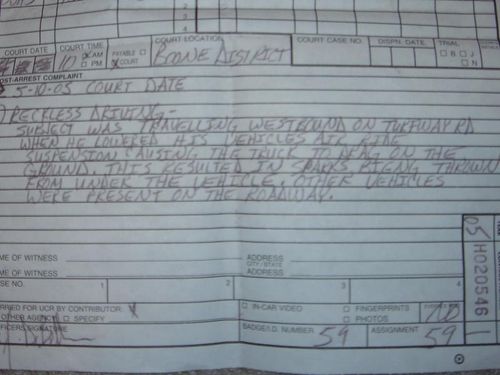 COURT DATE COURT TIME AM PM PAYABLE COURT COURT LOCATION BOONE DISTRICT COURT CASE NO. DISPN. DATE TRIAL B J N
POST-ARREST COMPLAINT
5-10-05 COURT DATE
RECKLESS DRIVING-
SUBJECT WAS TRAVELLING WESTBOUND ON TURFWAY RD
WHEN HE LOWERED HIS VEHICLES AIR RIDE
SUSPENSION CAUSING THE TRUCK TO DRAG ON THE
GROUND. THIS RESULTED IN SPARKS BIENG THROWN
FROM UNDER THE VEHICLE. OTHER VEHICLES
WERE PRESENT ON THE ROADWAY.
ME OF WITNESS ADDRESS
CITY/STATE
ME OF WITNESS ADDRESS
SE NO. 1 2 3 4
RRIED FOR UCR BY CONTRIBUTOR X IN-CAR VIDEO FINGERPRINTS
OTHER AGENCY SPECIFY PHOTOS
FICERS SIGNATURE BADGE/I.D. NUMBER 59 ASSIGNMENT 59
05 H020546 1